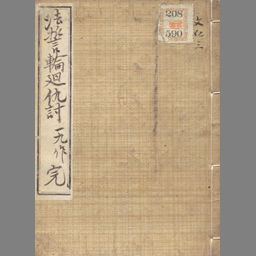 文化三
208
590
法誓輪廻仇討 一九作 完